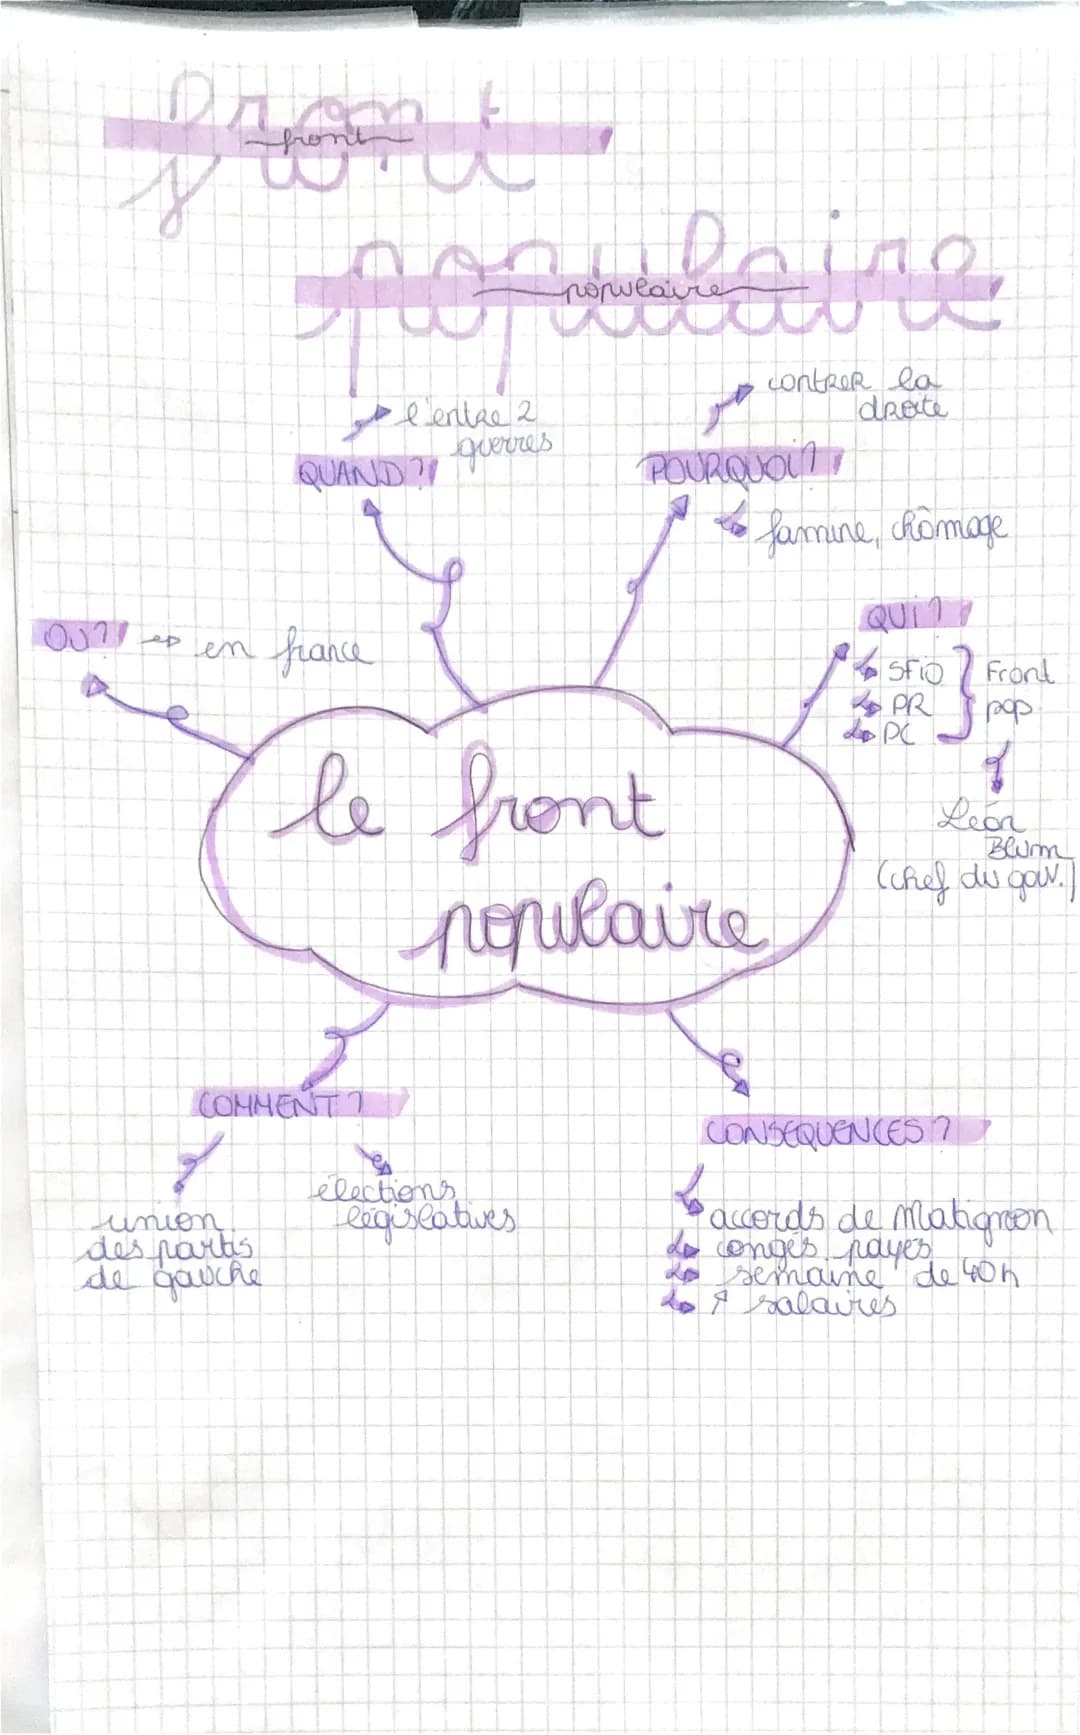 front
front
populaire
populaire
l'entre 2
guerres
QUAND ?
contrer la
droite
POURQUOI ?
famine, chômage
OU ?
en france
QUI ?
SFIO
PR
PC
Front
pop
Léon
Blum
(chef du gouv.)
le front
populaire
COMMENT ?
union
des partis
de gauche
élections
législatives
CONSEQUENCES ?
accords de Matignon
congés payés
semaine de 40h
↗ salaires